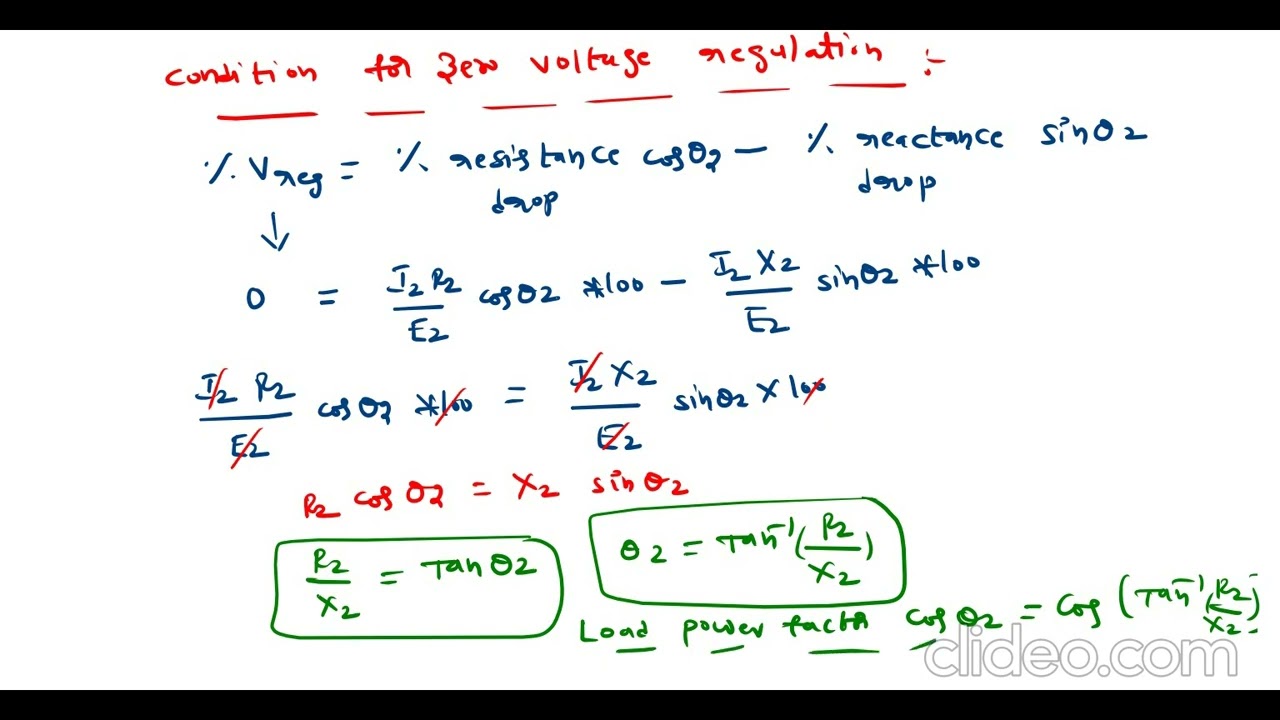 condition for zero voltage regulation :-
% Vreg = % resistance cosθ2 - % reactance sinθ2
drop drop
↓
0 = I2 R2 / E2 cosθ2 *100 - I2 X2 / E2 sinθ2 *100
I2 R2 / E2 cosθ2 *100 = I2 X2 / E2 sinθ2 X 100
R2 cosθ2 = X2 sinθ2
R2 / X2 = Tanθ2
θ2 = Tan⁻¹(R2 / X2)
Load power factor cosθ2 = cos (Tan⁻¹(R2 / X2))
clideo.com